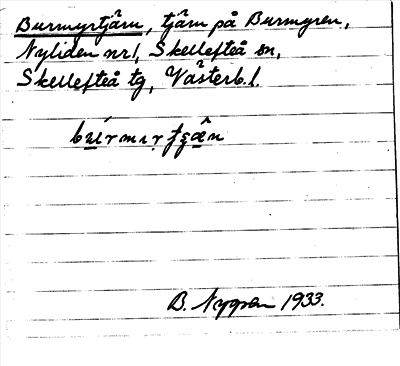 Burmyrtjärn, tjärn på Burmyren,
Nyliden nr 1, Skellefteå sn,
Skellefteå tg, Västerb. l.
B. Nygren 1933.